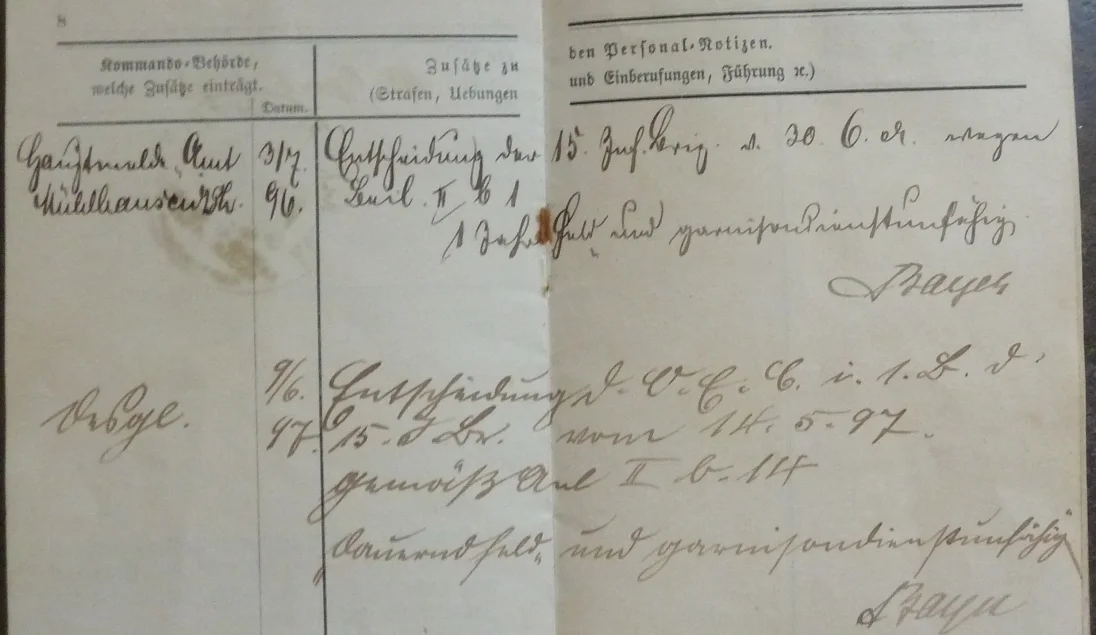 8
Kommando-Behörde,
welche Zusätze einträgt.
Datum.
Zusätze zu
(Strafen, Uebungen
den Personal-Notizen.
und Einberufungen, Führung ꝛc.)
Hauptmelde-Amt 3/7. Entscheidung der 15. Inf. Brig. v. 30. 6. wegen
Mühlhausen i/Th. 96. Beil. II b 1
1 Jahr Feld und garnisondienstunfähig
Bayer
9/6. Entscheidung d. O. E. C. i. 1. B. d.
Desgl. 97. 15. J Br. vom 14. 5. 97.
gemäß Anl II b. 14
"dauernd feld- und garnisondienstunfähig"
Bayer